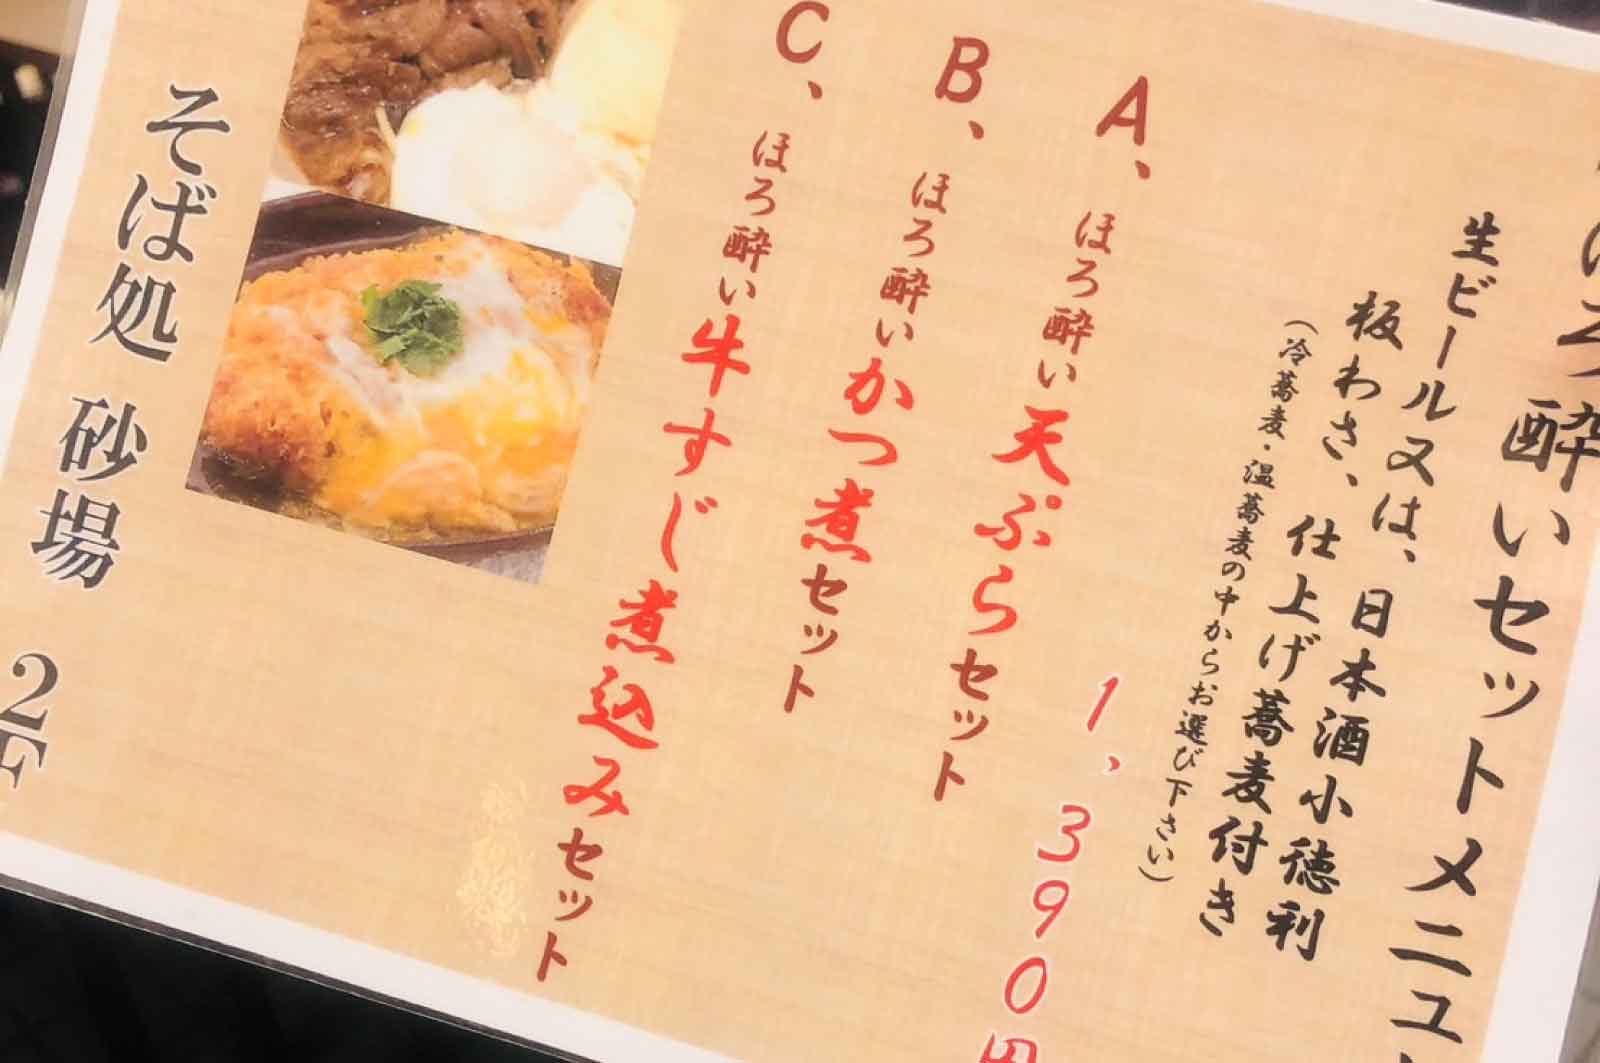 ほろ酔いセットメニュー
生ビール又は、日本酒小徳利
板わさ、仕上げ蕎麦付き
(冷蕎麦・温蕎麦の中からお選び下さい)
1,390円
A、ほろ酔い天ぷらセット
B、ほろ酔いかつ煮セット
C、ほろ酔い牛すじ煮込みセット
そば処 砂場 2F